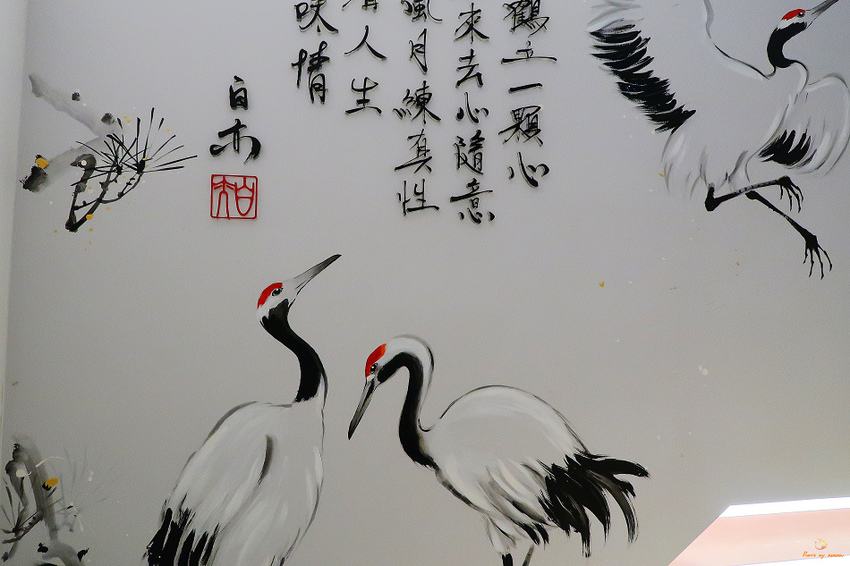 鶴立一顆心
來去心隨意
風月練真性
人生
味情
白木